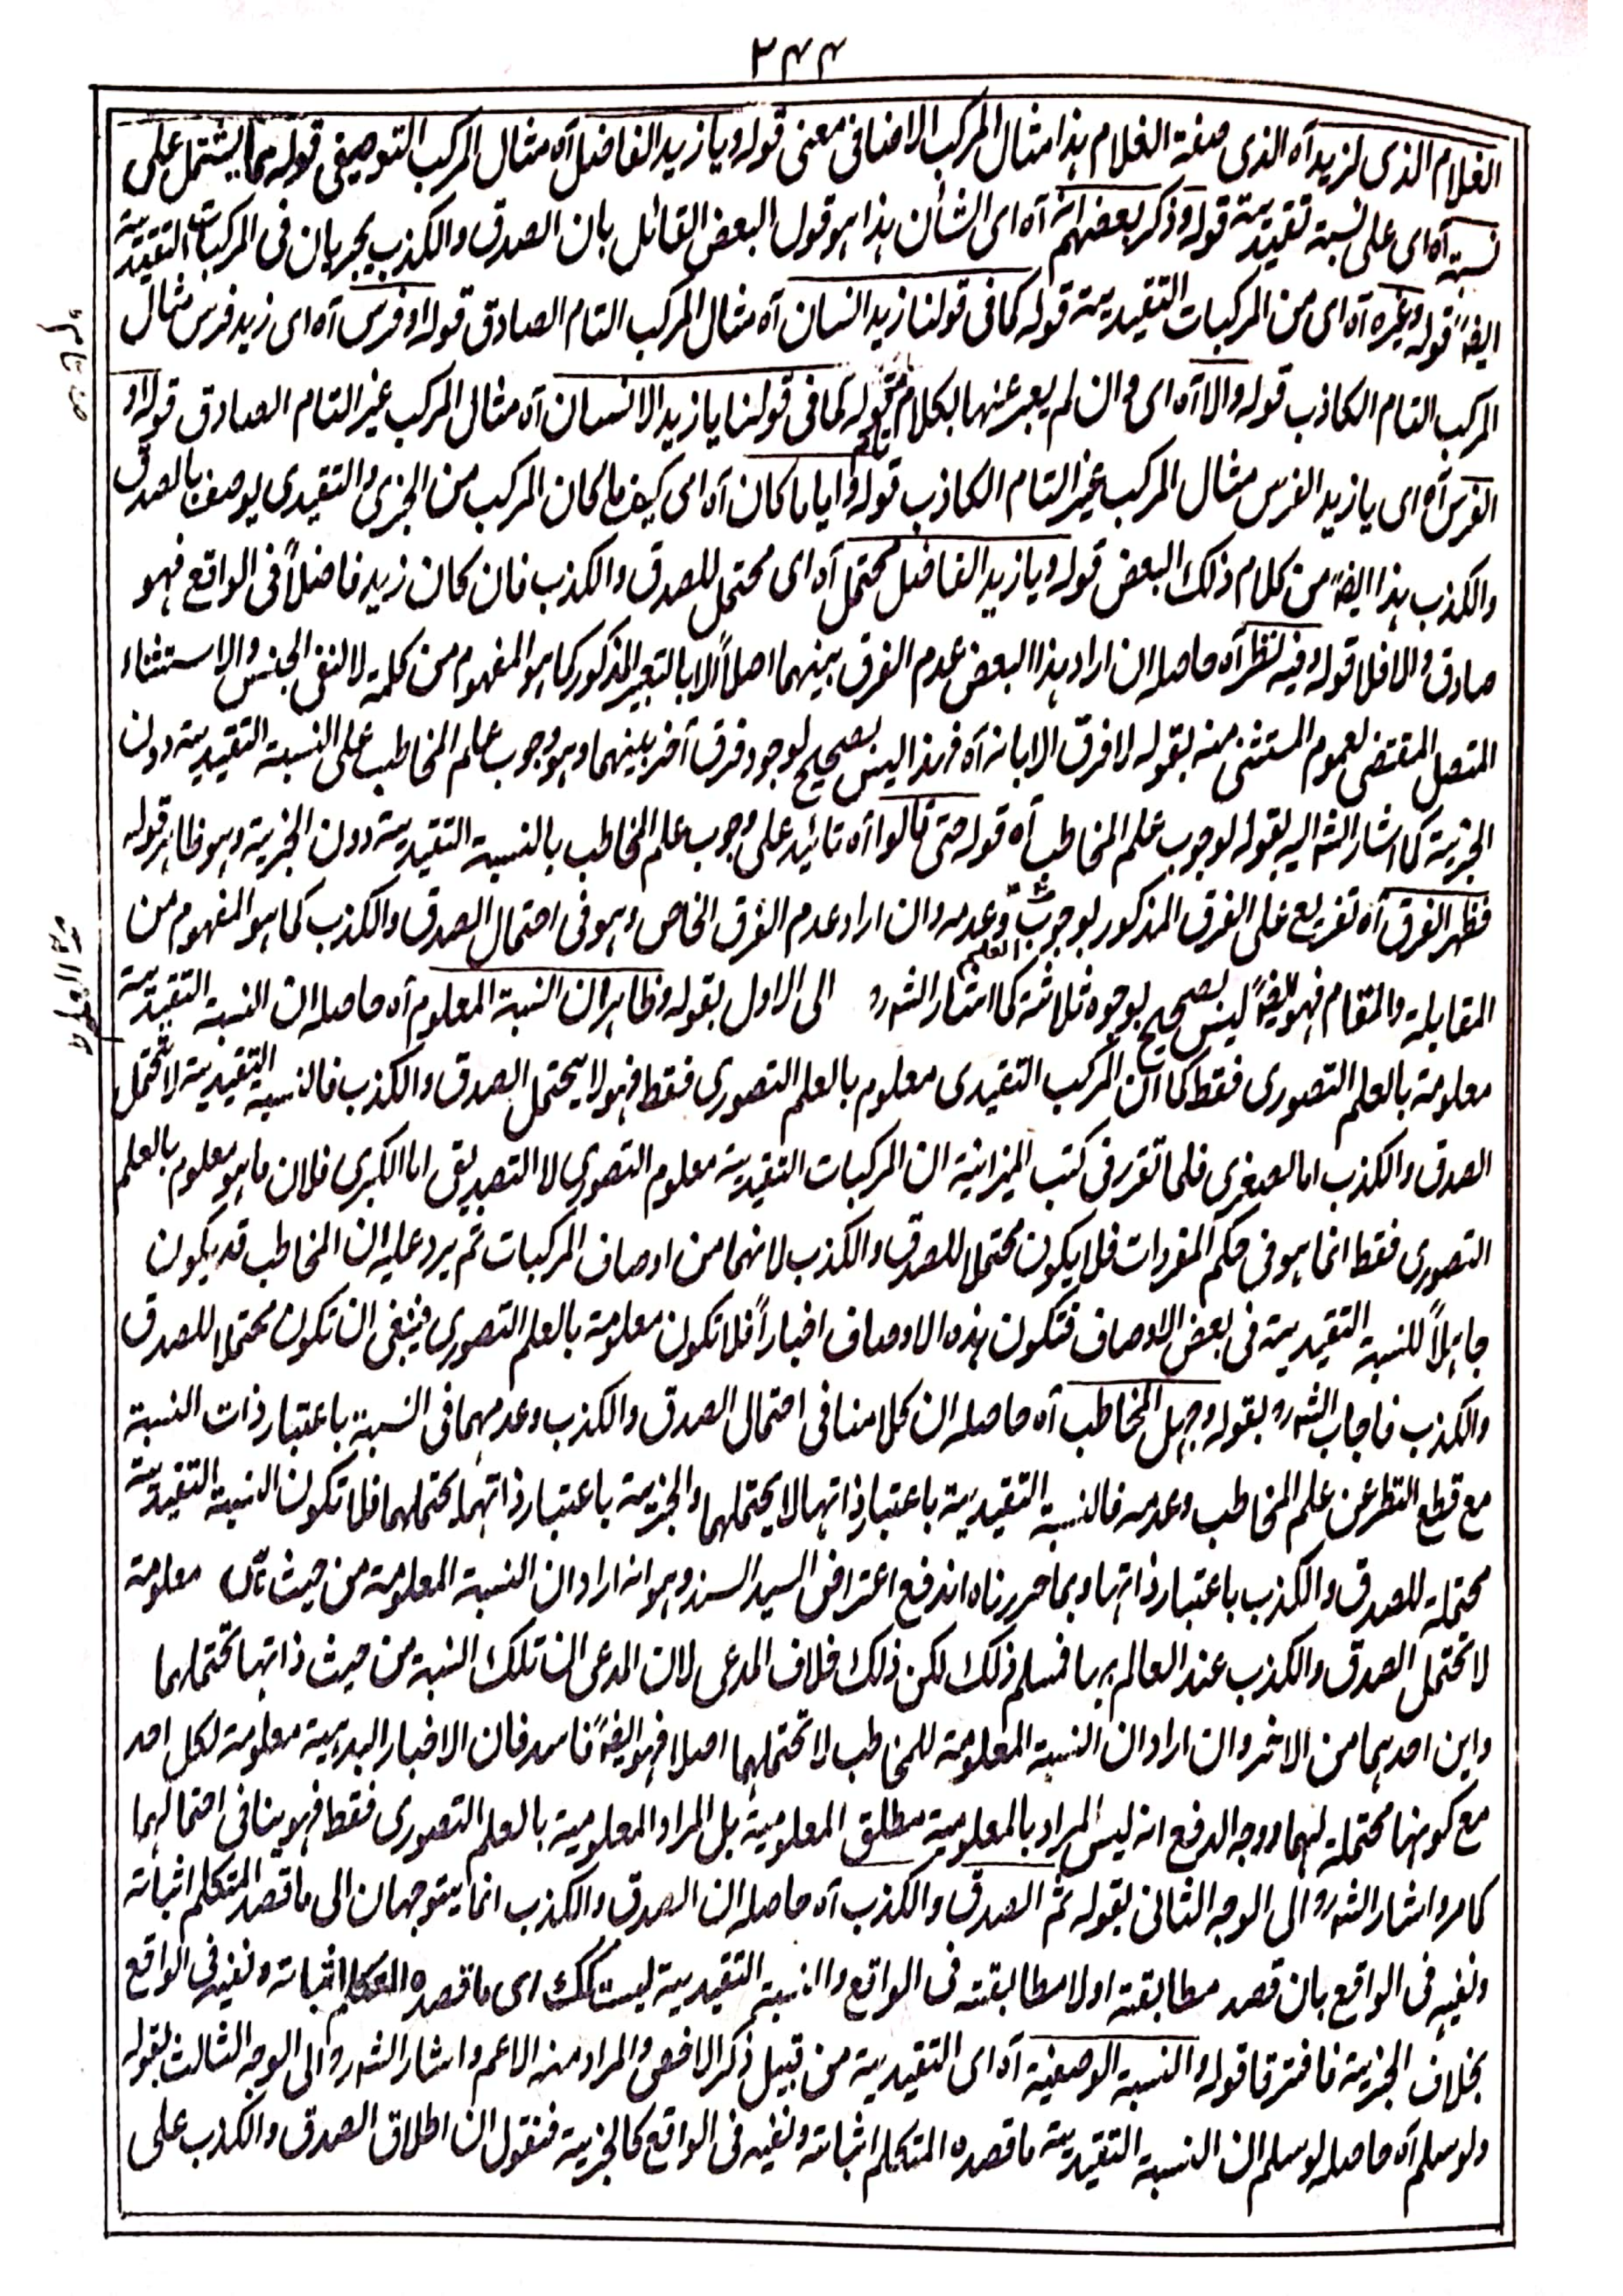 ۲۴۴
الغلام الذی لزید آه الذی صفة الغلام هذا مثال المرکب الاضافی معنی قوله ویا زید الفاضل آه مثال المرکب التوصیفی قوله مما یشتمل علی
نسبة آه ای علی نسبة تقییدیة قوله وذکر بعضهم انه آه ای الشأن هذا هو قول البعض القائل بان الصدق والکذب یجریان فی المرکبات التقییدیة
ایضاً قوله وغیره آه ای من المرکبات التقییدیة قوله کما فی قولنا زید انسان آه مثال المرکب التام الصادق قوله او فرس آه ای زید فرس مثال
المرکب التام الکاذب قوله والا آه ای وان لم یعبر عنها بکلام تام قوله کما فی قولنا یا زید الانسان آه مثال المرکب غیر التام الصادق قوله او
الفرس آه ای یا زید الفرس مثال المرکب غیر التام الکاذب قوله وایا ما کان آه ای کیف ما کان المرکب من الخبری والتقییدی یوصف بالصدق
والکذب هذا ایضاً من کلام ذلک البعض قوله ویا زید الفاضل محتمل آه ای محتمل للصدق والکذب فان کان زید فاضلاً فی الواقع فهو
صادق والا فلا قوله وفیه نظر آه حاصله ان اراد هذا البعض عدم الفرق بینهما اصلاً الا بالتعبیر المذکور کما هو المفهوم من کلمة لا لنفی الجنس والاستثناء
المتصل المقتضی لعموم المستثنی منه بقوله لا فرق الا بانه آه فهذا لیس بصحیح لوجود فرق آخر بینهما وهو وجوب علم المخاطب علی النسبة التقییدیة دون
الخبریة کما اشار الش الیه بقوله لوجوب علم المخاطب آه قوله حتی قالوا آه تائید علی وجوب علم المخاطب بالنسبة التقییدیة دون الخبریة وهو ظاهر قوله
فظهر الفرق آه تفریع علی الفرق المذکور بوجوب العلم وعدمه وان اراد عدم الفرق الخاص وهو فی احتمال الصدق والکذب کما هو المفهوم من
المقابلة والمقام فهو ایضاً لیس بصحیح بوجوه ثلاثة کما اشار الش ره الی الاول بقوله وظاهر ان النسبة المعلوم آه حاصله ان النسبة التقییدیة
معلومة بالعلم التصوری فقط کما ان المرکب التقییدی معلوم بالعلم التصوری فقط فهو لا یحتمل الصدق والکذب فالنسبة التقییدیة لا تحتمل
الصدق والکذب اما الصغری فلما تقرر فی کتب المیزانیة ان المرکبات التقییدیة معلوم التصوری لا التصدیق اما الکبری فلان ما هو معلوم بالعلم
التصوری فقط انما هو فی حکم المفردات فلا یکون محتملا للصدق والکذب لانهما من اوصاف المرکبات ثم یرد علیه ان المخاطب قد یکون
جاهلاً للنسبة التقییدیة فی بعض الاوصاف فتکون هذه الاوصاف اخباراً فلا تکون معلومة بالعلم التصوری فینبغی ان تکون محتملا للصدق
والکذب فاجاب الش ره بقوله وجهل المخاطب آه حاصله ان کلامنا فی احتمال الصدق والکذب وعدمهما فی النسبة باعتبار ذات النسبة
مع قطع النظر عن علم المخاطب وعدمه فالنسبة التقییدیة باعتبار ذاتها لا یحتملهما والخبریة باعتبار ذاتهما یحتملهما فلا تکون النسبة التقییدیة
محتملة للصدق والکذب باعتبار ذاتها وبما حررناه اندفع اعتراض السید السند وهو انه اراد ان النسبة المعلومة من حیث انها معلومة
لا تحتمل الصدق والکذب عند العالم بها فسلم ذلک لکن ذلک خلاف المدعی لان المدعی ان تلک النسبة من حیث ذاتها تحتملهما
واین احدهما من الاخر وان اراد ان النسبة المعلومة للمخاطب لا تحتملهما اصلا فهو ایضاً فاسد فان الاخبار البدیهیة معلومة لکل احد
مع کونها محتملة لهما ووجه الدفع انه لیس المراد بالمعلومیة مطلق المعلومیة بل المراد المعلومیة بالعلم التصوری فقط فهو ینافی احتمالهما
کما مر واشار الش ره الی الوجه الثانی بقوله ثم الصدق والکذب آه حاصله ان الصدق والکذب انما یتوجهان الی ما قصد المتکلم اثباته
ونفیه فی الواقع بان قصد مطابقته او لا مطابقته فی الواقع والنسبة التقییدیة لیست کک ای ما قصده المتکلم اثباته ونفیه فی الواقع
بخلاف الخبریة فافترقا قوله والنسبة الوصفیة آه ای التقییدیة من قبیل ذکر الاخص والمراد منه الاعم واشار الش ره الی الوجه الثالث بقوله
ولو سلم آه حاصله لو سلم ان النسبة التقییدیة ما قصده المتکلم اثباته ونفیه فی الواقع کالخبریة فنقول ان اطلاق الصدق والکذب علی